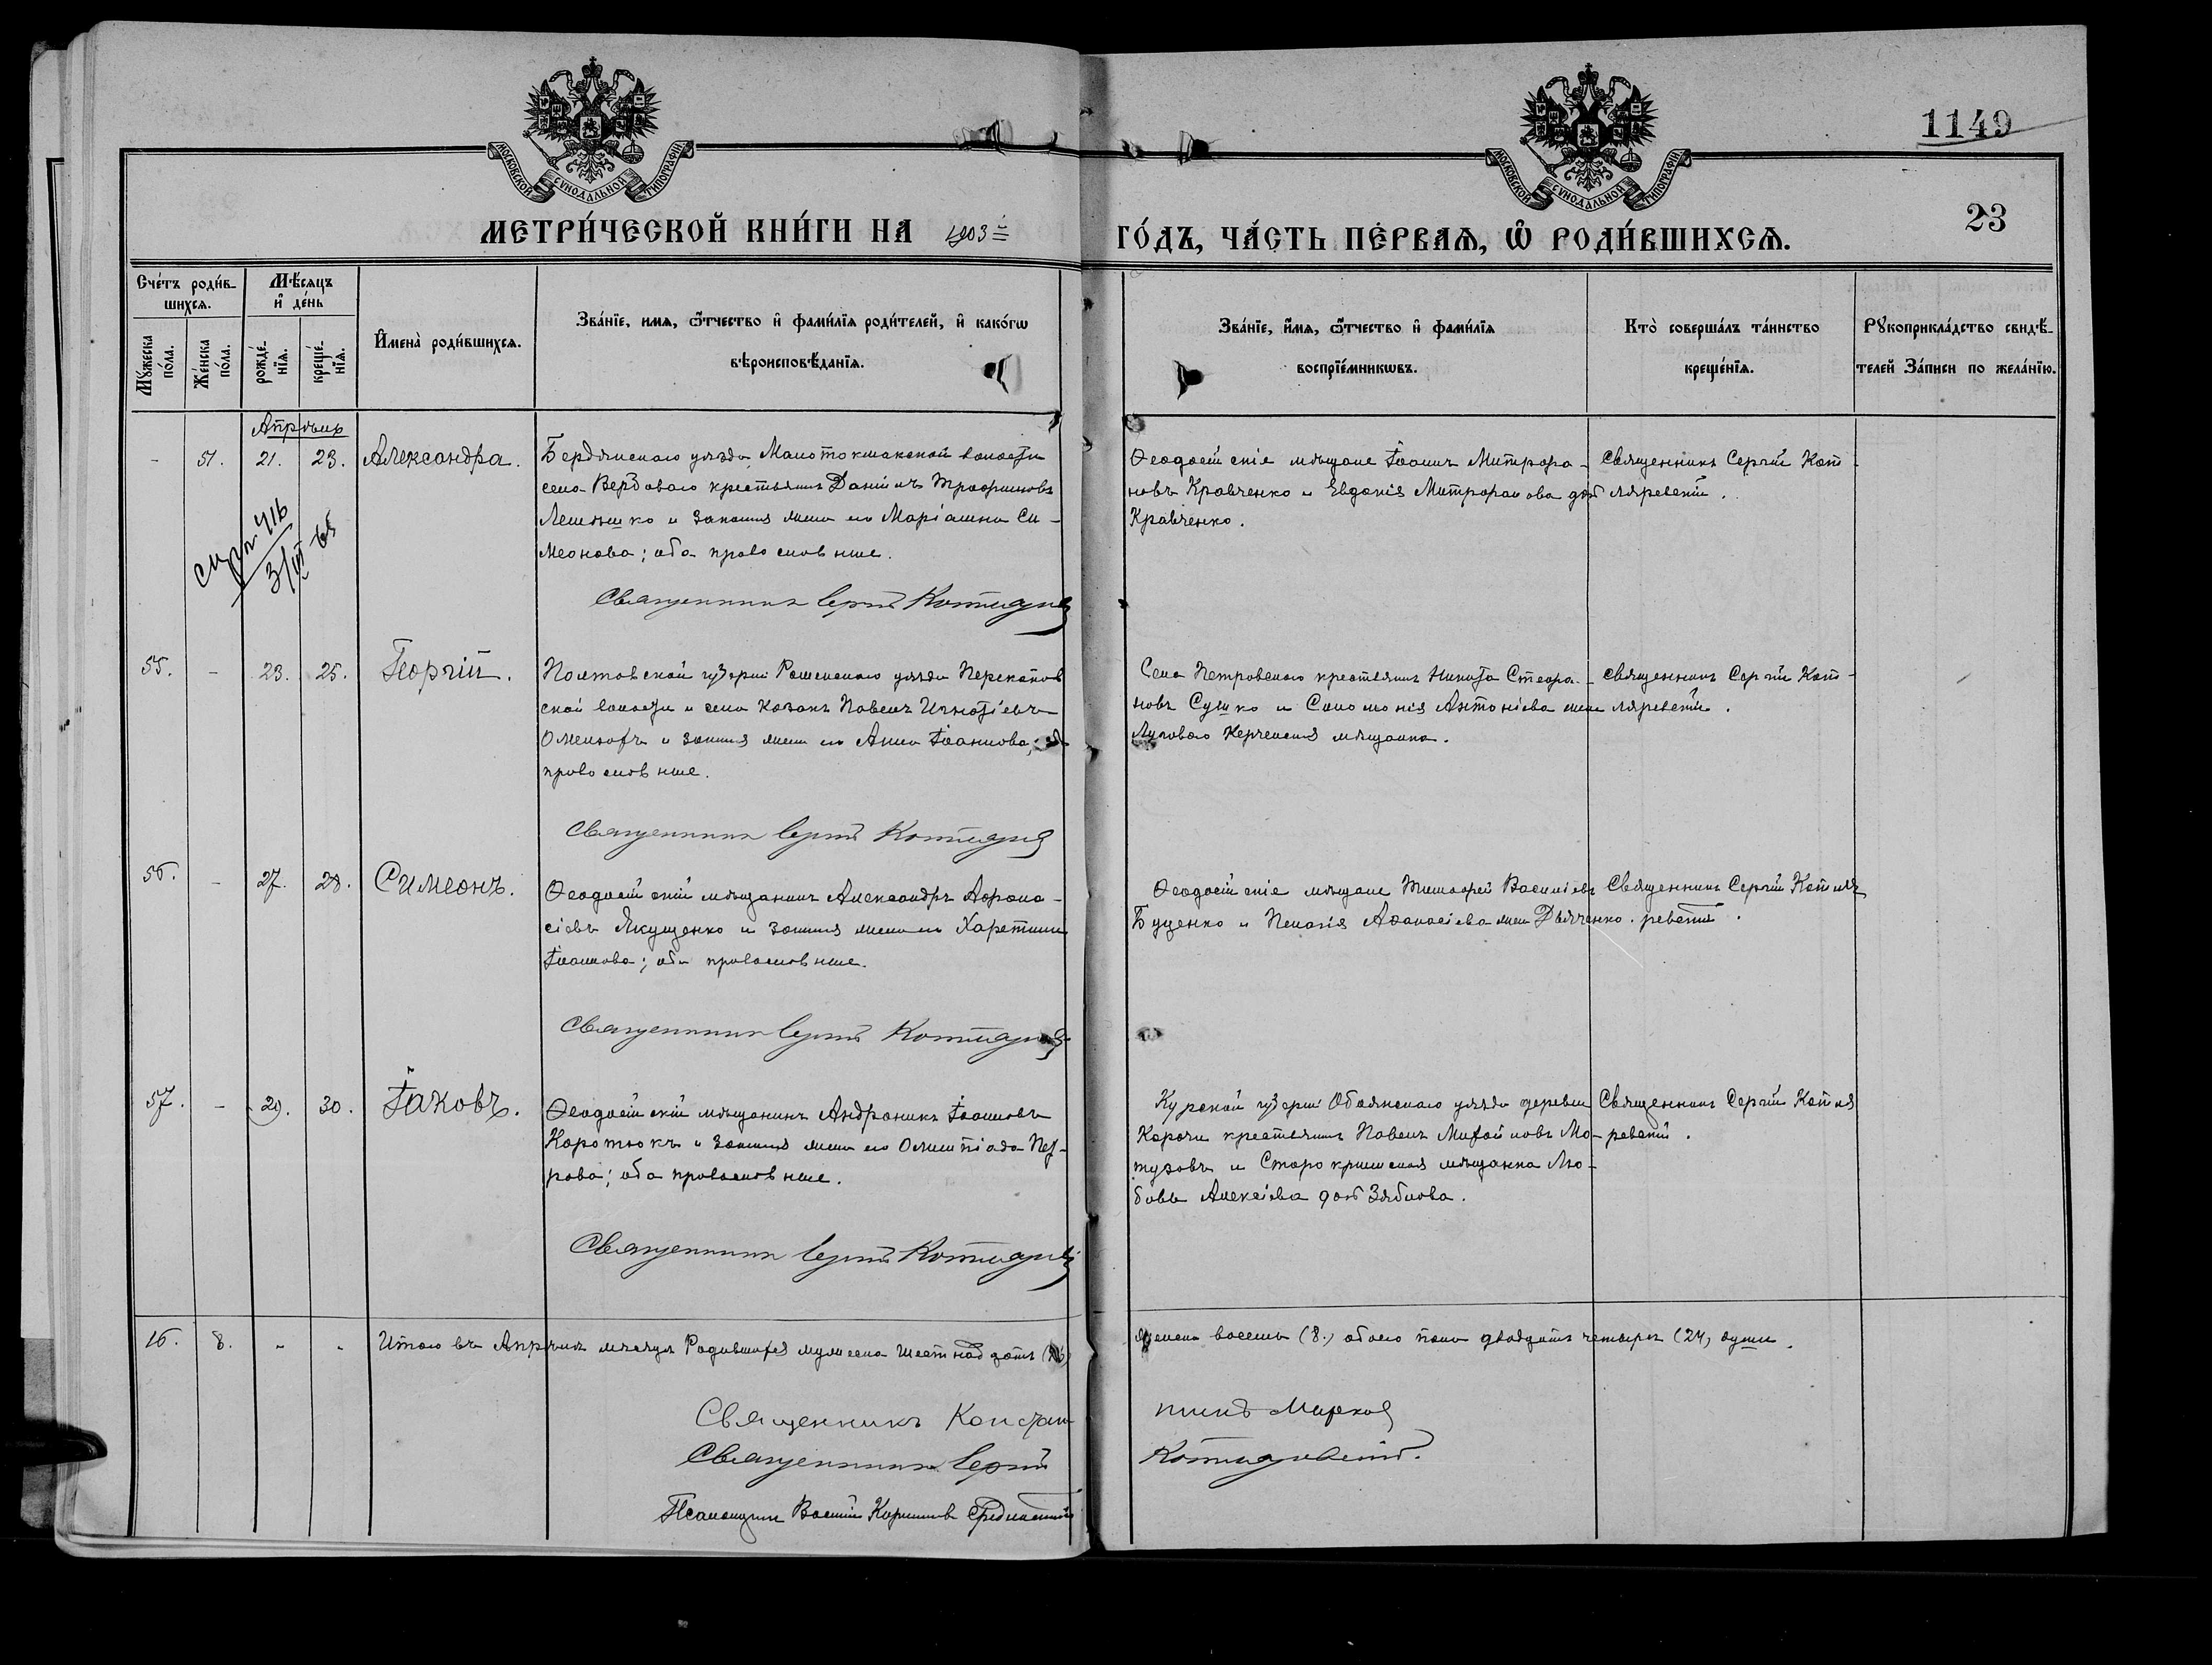 МОСКОВСКОЙ СѴНОДАЛЬНОЙ ТИПОГРАФІИ
МОСКОВСКОЙ СѴНОДАЛЬНОЙ ТИПОГРАФІИ
1149
23
МЕТРИ́ЧЕСКОЙ КНИ́ГИ НА 1903 ГО́ДЪ, ЧА́СТЬ ПЕ́РВАѦ, Ѽ РОДИ́ВШИХСѦ.
Сче́тъ роди́в-
шихсѧ.
Мѣ́сяцъ
и҆ де́нь
Мꙋ́жеска по́ла.
Же́нска по́ла.
рожде́-
нїѧ.
креще́-
нїѧ.
И҆мена̀ роди́вшихсѧ.
Зва́нїе, имѧ, ѻ҆́тчество и҆ фами́лїѧ роди́телей, и҆ како́гѡ
вѣроисповѣ́данїѧ.
Зва́нїе, и҆́мѧ, ѻ҆́тчество и҆ фами́лїѧ
воспрїе́мникѡвъ.
Кто̀ соверша́лъ та́инство
креще́нїѧ.
Рꙋкоприкла́дство свидѣ́-
телей За́писи по жела́нїю.
Апрѣль
- 51. 21. 23. Александра.
Бердянскаго уѣзда, Малотокмакской волости
села Вербоваго крестьянинъ Даніилъ Трофимовъ
Лемешко и законная жена его Маріамна Си-
меонова; оба православные.
Священникъ Сергій Котляревскій
Ѳеодосійскіе мѣщане Іоаннъ Митрофа-
новъ Кравченко и Евдокія Митрофанова дочь
Кравченко.
Священникъ Сергій Кот-
ляревскій.
416
55. - 23. 25. Георгій.
Полтавской губерніи Роменскаго уѣзда Перекопов
ской волости и села козакъ Павелъ Игнатіевъ
и законная жена его Анна Іоаннова,
православные.
Священникъ Сергій Котляревскій
Села Петровскаго крестьянинъ Никита Стефа-
новъ Сушко и Соломонія Антоніева
Керченская мѣщанка.
Священникъ Сергій Кот-
ляревскій.
56. - 27. 28. Симеонъ.
Ѳеодосійскій мѣщанинъ Александръ Афана-
сіевъ Якущенко и законная жена его Харитина
Іоаннова; оба православные.
Священникъ Сергій Котляревскій
Ѳеодосійскіе мѣщане Тимофей Василіевъ
Буценко и Пелагія Афанасіева жена Дьяченко.
Священникъ Сергій Котля
ревскій.
57. - 29. 30. Іаковъ.
Ѳеодосійскій мѣщанинъ Андроникъ Іоанновъ
Коротюкъ и законная жена его Олимпіада Пет-
рова; оба православные.
Священникъ Сергій Котляревскій
Курской губерніи Обоянскаго уѣзда деревни
Карочи крестьянинъ Павелъ Михайловъ Мо-
тузовъ и Старокрымская мѣщанка Лю-
бовь Алексіева дочь Зяблова.
Священникъ Сергій Котля
ревскій.
16. 8. " " Итого въ Апрѣлѣ мѣсяцѣ Родившихся мужеска шестнадцать (16)
женска восемь (8.) обоего пола двадцать четыре (24) души.
Священникъ Констан
тинъ Марков
Священникъ Сергій
Котляревскій.
Псаломщикъ Василій